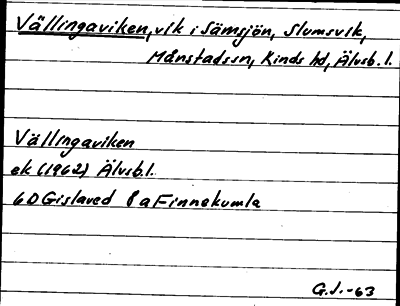 Vällingaviken, vik i Sämsjön, Slumsvik,
Månstadssn, Kinds hd, Älvsb. l.
Vällingaviken
ek (1962) Älvsb. l.
6D Gislaved 8 a Finnekumla
G.J.-63